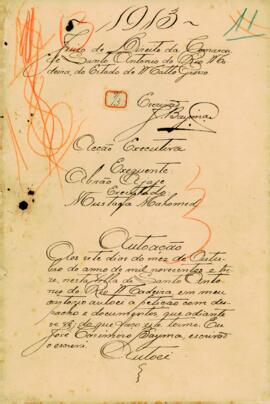 1913
Juizo de Direito da Comarca
de Santo Antonio do Rio Ma
deira, do Estado de Matto Grosso
11
13
Escrivão
J. Bayma
Acção Executiva
Exequente:
Abrão
Executado:
Mustafa Mahomed
Autoação
Aos sete dias do mez de Outu
bro do anno de mil novecentos e tre
ze, nesta Villa de Santo Anto
nio do Rio Madeira, em meu
cartorio autoei a petição com des
pacho e documentos que adiante
se vê; do que faço este termo. Eu
José Bayma, escrivão
o escrevi.
Autoei